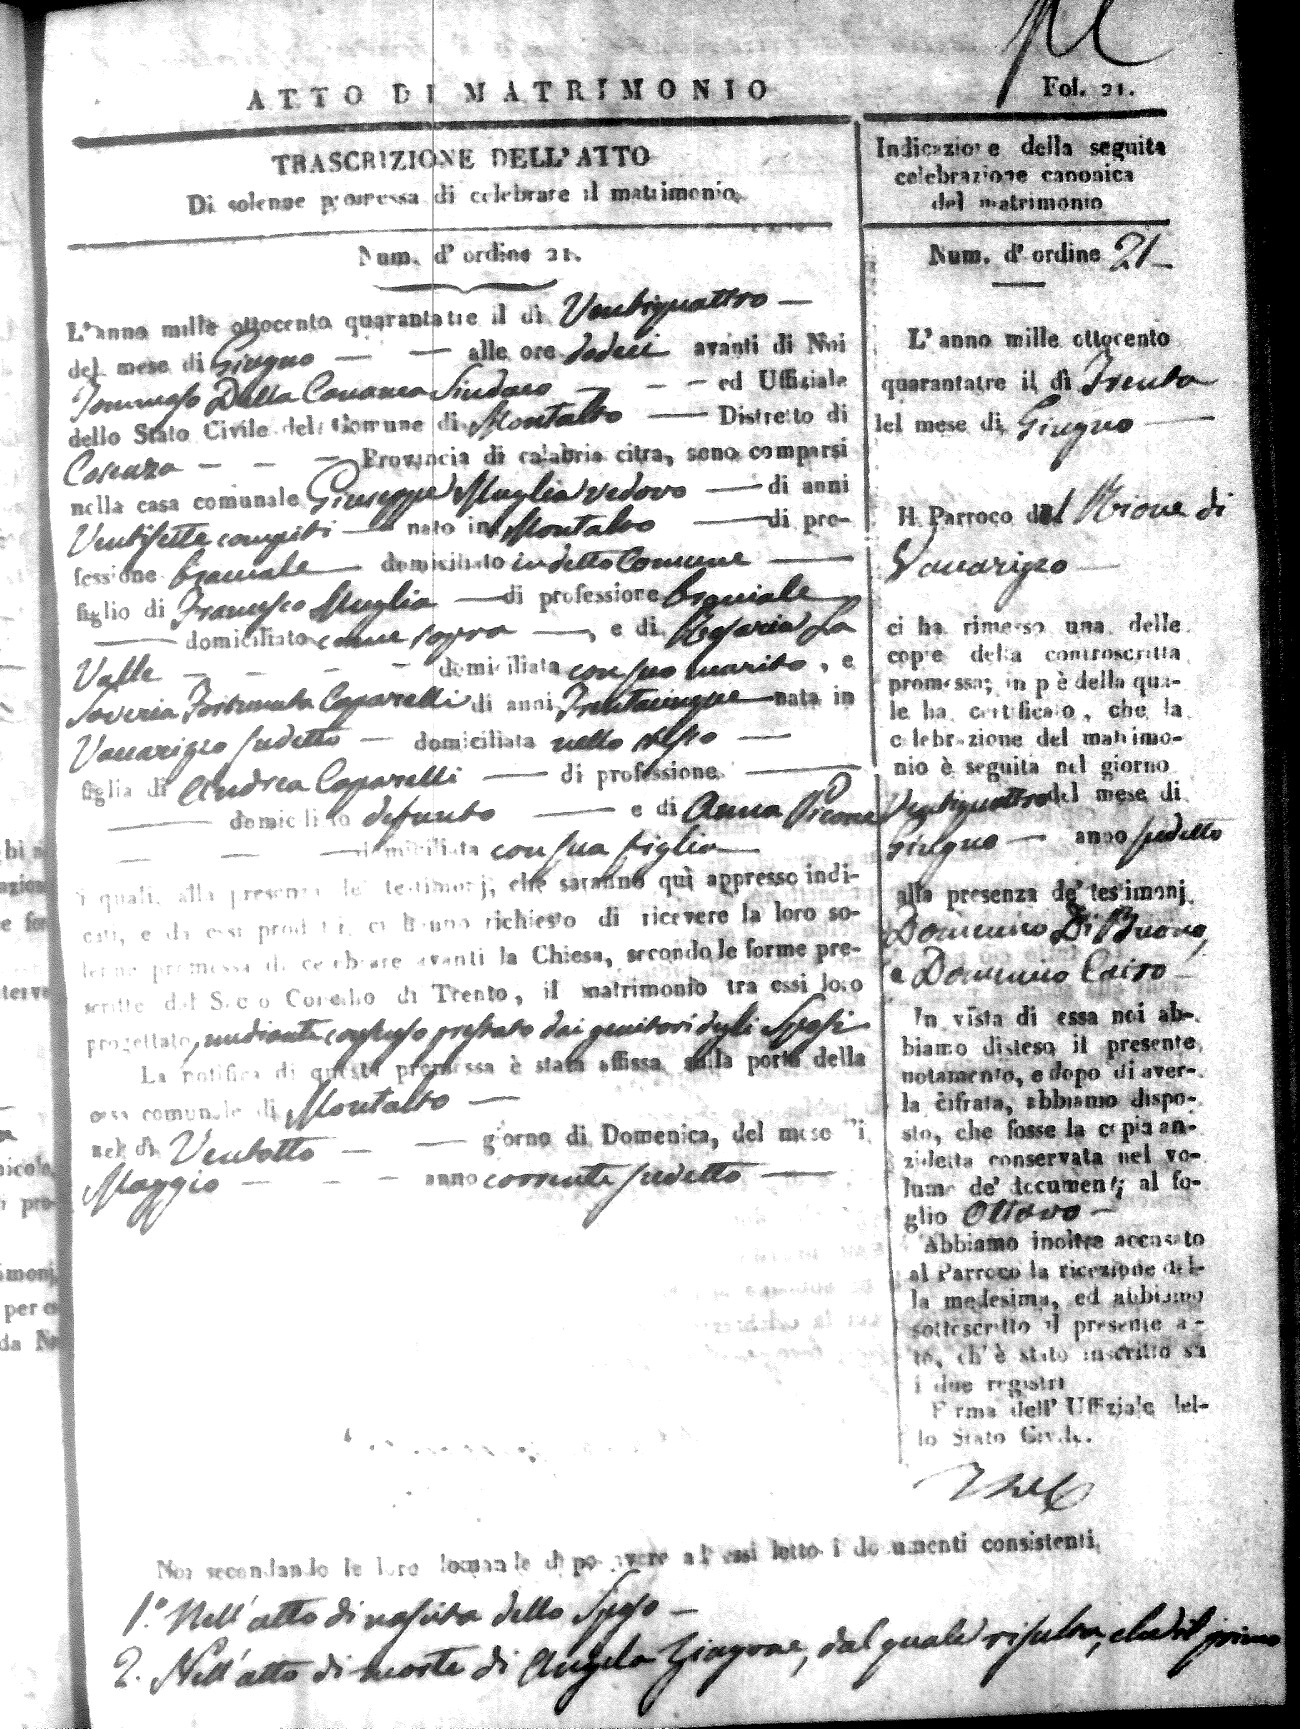 ATTO DI MATRIMONIO
Fol. 21.
TRASCRIZIONE DELL'ATTO
Di solenne promessa di celebrare il matrimonio.
Num. d'ordine 21.
L'anno mille ottocento quarantatre il dì Ventiquattro
del mese di Giugno alle ore dodeci avanti di Noi
Tommaso Della Cananea Sindaco ed Uffiziale
dello Stato Civile del Comune di Montalto Distretto di
Cosenza Provincia di calabria citra, sono comparsi
nella casa comunale Giuseppe Muglia vedovo di anni
Ventisette compiti nato in Montalto di pro-
fessione braciale domiciliato in detto Comune
figlio di Francesco Muglia di professione braciale
domiciliato come sopra, e di Rosaria La
Valle domiciliata con suo marito, e
Saveria Fortunata Caparelli di anni Trentacinque nata in
Vaccarizzo sudetto domiciliata nello stesso
figlia di Andrea Caparelli di professione
domiciliato defunto e di Anna
domiciliata con sua figlia
i quali alla presenza de' testimonj, che saranno quì appresso indi-
cati, e da essi prodotti, ci hanno richiesto di ricevere la loro so-
lenne promessa di celebrare avanti la Chiesa, secondo le forme pre-
scritte dal Sacro Concilio di Trento, il matrimonio tra essi loro
progettato, mediante consenso prestato dai genitori degli Sposi
La notifica di questa promessa è stata affissa sulla porta della
casa comunale di Montalto
nel dì Ventotto giorno di Domenica, del mese di
Maggio anno corrente sudetto
Noi secondando le loro domande dopo avere ad essi letto i documenti consistenti
1.° Nell'atto di nascita dello Sposo
2. Nell'atto di morte di Angela, dal quale risulta, che il primo
Indicazione della seguita
celebrazione canonica
del matrimonio
Num. d'ordine 21
L'anno mille ottocento
quarantatre il dì Trenta
del mese di Giugno
Il Parroco del Rione di
Vaccarizzo
ci ha rimesso una delle
copie della controscritta
promessa; in piè della qua-
le ha certificato, che la
celebrazione del matrimo-
nio è seguita nel giorno
Ventiquattro del mese di
Giugno anno sudetto
alla presenza de' testimonj
Domenico Di Buono,
e Domenico Cairo
In vista di essa noi ab-
biamo disteso il presente
notamento, e dopo di aver-
la cifrata, abbiamo dispo-
sto, che fosse la copia an-
zidetta conservata nel vo-
lume de' documenti al fo-
glio Ottavo
Abbiamo inoltre accusato
al Parroco la ricezione del-
la medesima, ed abbiamo
sottoscritto il presente at-
to, ch'è stato inscritto su
i due registri
Firma dell' Uffiziale del-
lo Stato Civile.